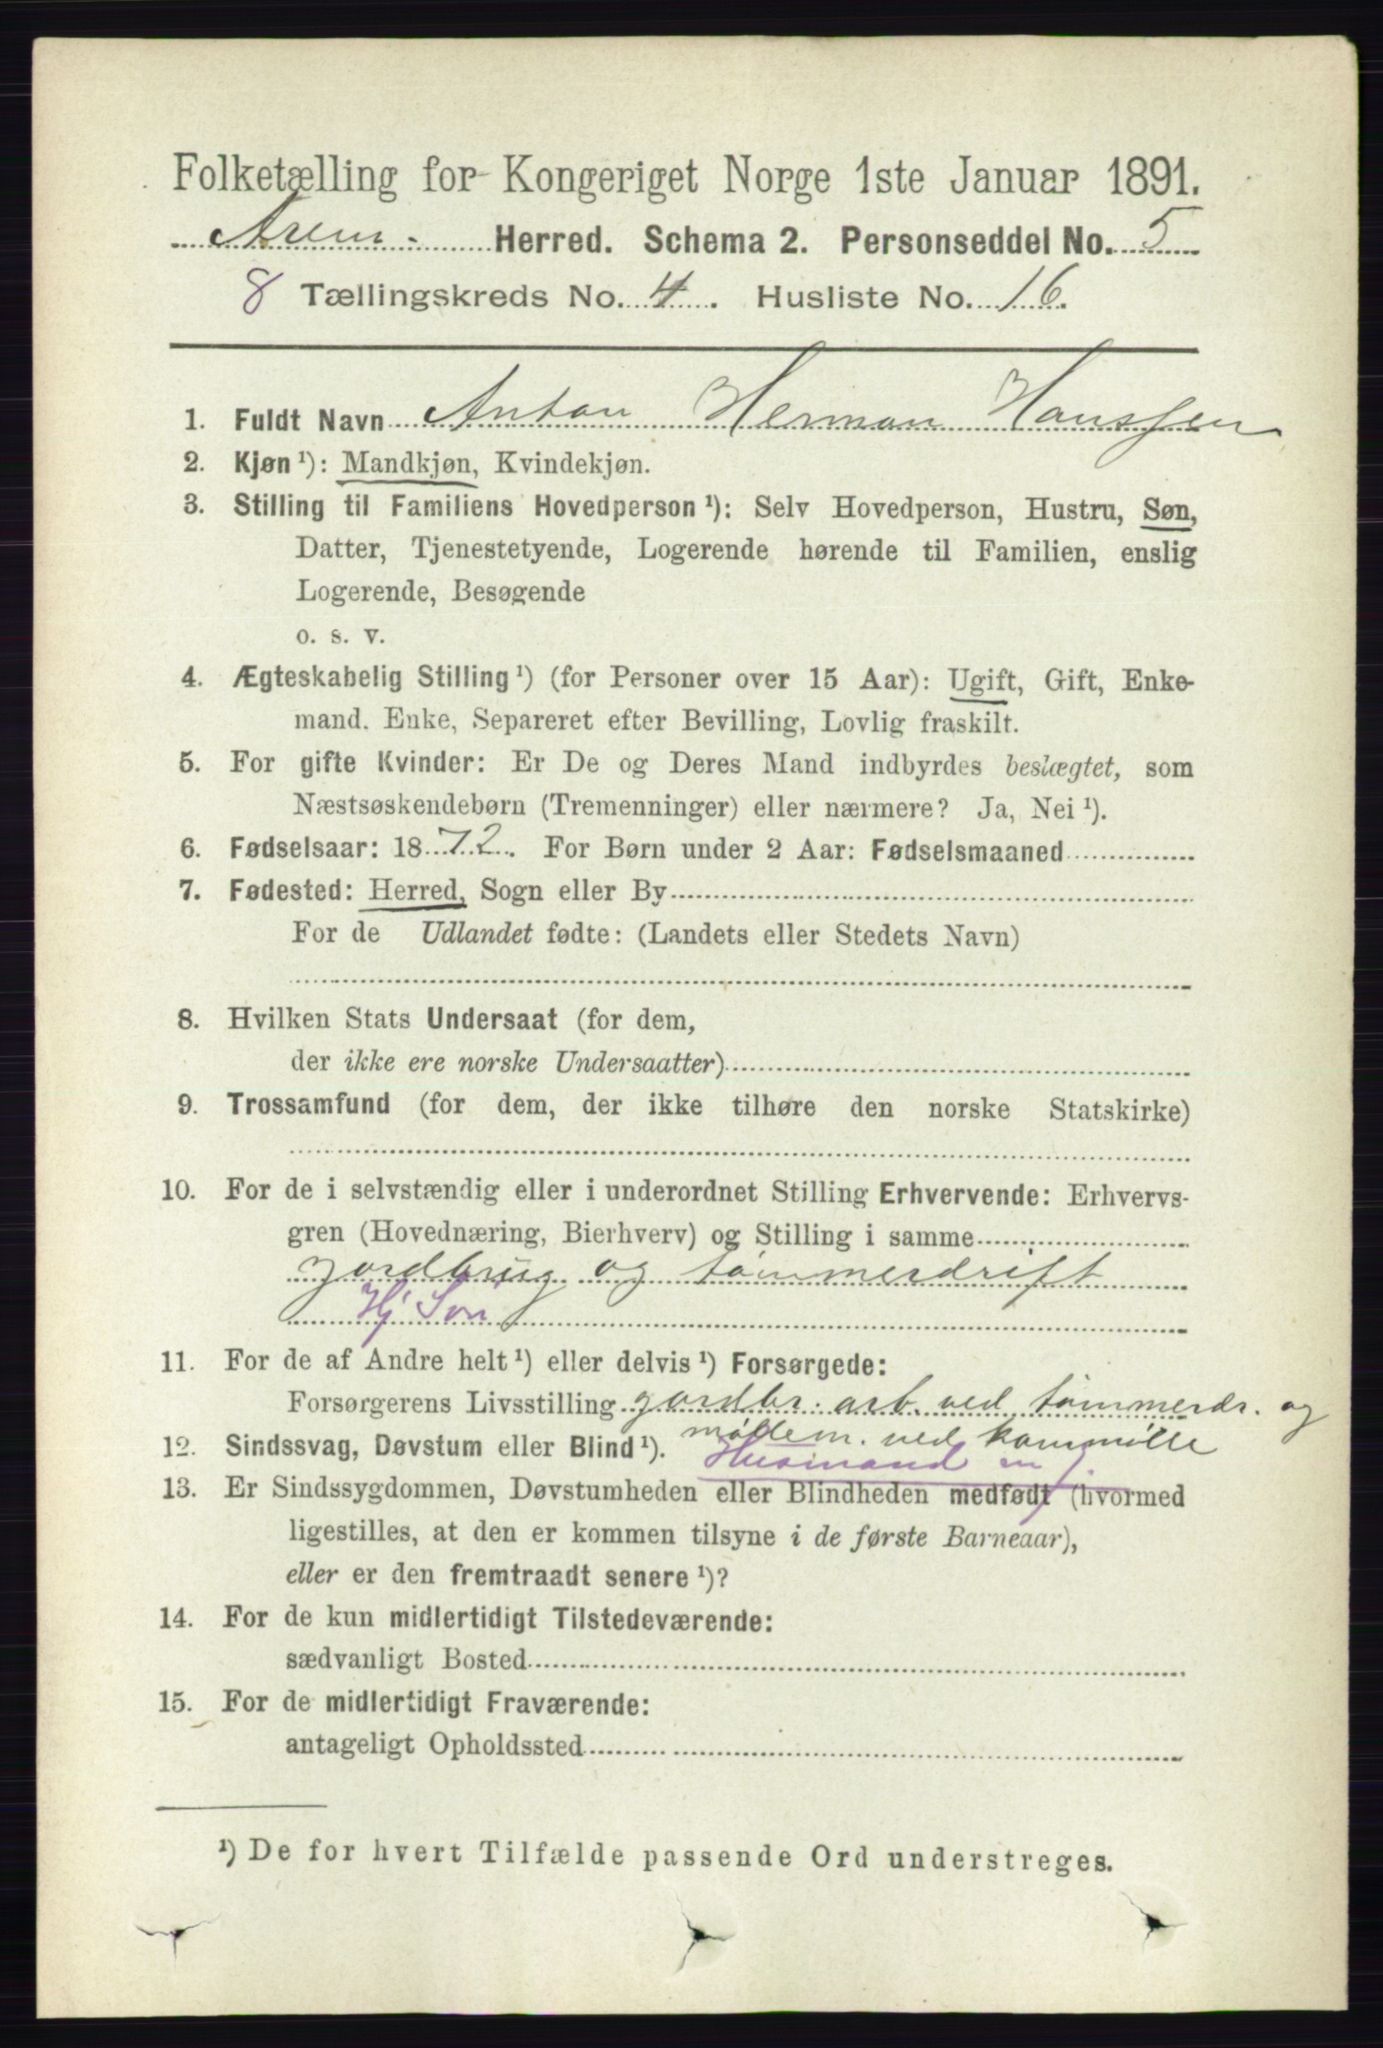 Folketælling for Kongeriget Norge 1ste Januar 1891.
Arem. Herred. Schema 2. Personseddel No. 5
8 Tællingskreds No. 4. Husliste No. 16.
1. Fuldt Navn Anton Herman Hanssen
2. Kjøn ¹): Mandkjøn, Kvindekjøn.
3. Stilling til Familiens Hovedperson ¹): Selv Hovedperson, Hustru, Søn,
Datter, Tjenestetyende, Logerende hørende til Familien, enslig
Logerende, Besøgende
o. s. v.
4. Ægteskabelig Stilling ¹) (for Personer over 15 Aar): Ugift, Gift, Enke-
mand. Enke, Separeret efter Bevilling, Lovlig fraskilt.
5. For gifte Kvinder: Er De og Deres Mand indbyrdes beslægtet, som
Næstsøskendebørn (Tremenninger) eller nærmere? Ja, Nei ¹).
6. Fødselsaar: 1872. For Børn under 2 Aar: Fødselsmaaned
7. Fødested: Herred, Sogn eller By
For de Udlandet fødte: (Landets eller Stedets Navn)
8. Hvilken Stats Undersaat (for dem,
der ikke ere norske Undersaatter)
9. Trossamfund (for dem, der ikke tilhøre den norske Statskirke)
10. For de i selvstændig eller i underordnet Stilling Erhvervende: Erhvervs-
gren (Hovednæring, Bierhverv) og Stilling i samme
jordbrug og tømmerdrift
Hj Søn
11. For de af Andre helt ¹) eller delvis ¹) Forsørgede:
Forsørgerens Livsstilling jordbr. arb. ved tømmerdr. og
møllem. ved kornmølle
12. Sindssvag, Døvstum eller Blind ¹).
Husmand m/j.
13. Er Sindssygdommen, Døvstumheden eller Blindheden medfødt (hvormed
ligestilles, at den er kommen tilsyne i de første Barneaar),
eller er den fremtraadt senere ¹)?
14. For de kun midlertidigt Tilstedeværende:
sædvanligt Bosted
15. For de midlertidigt Fraværende:
antageligt Opholdssted
¹) De for hvert Tilfælde passende Ord understreges.